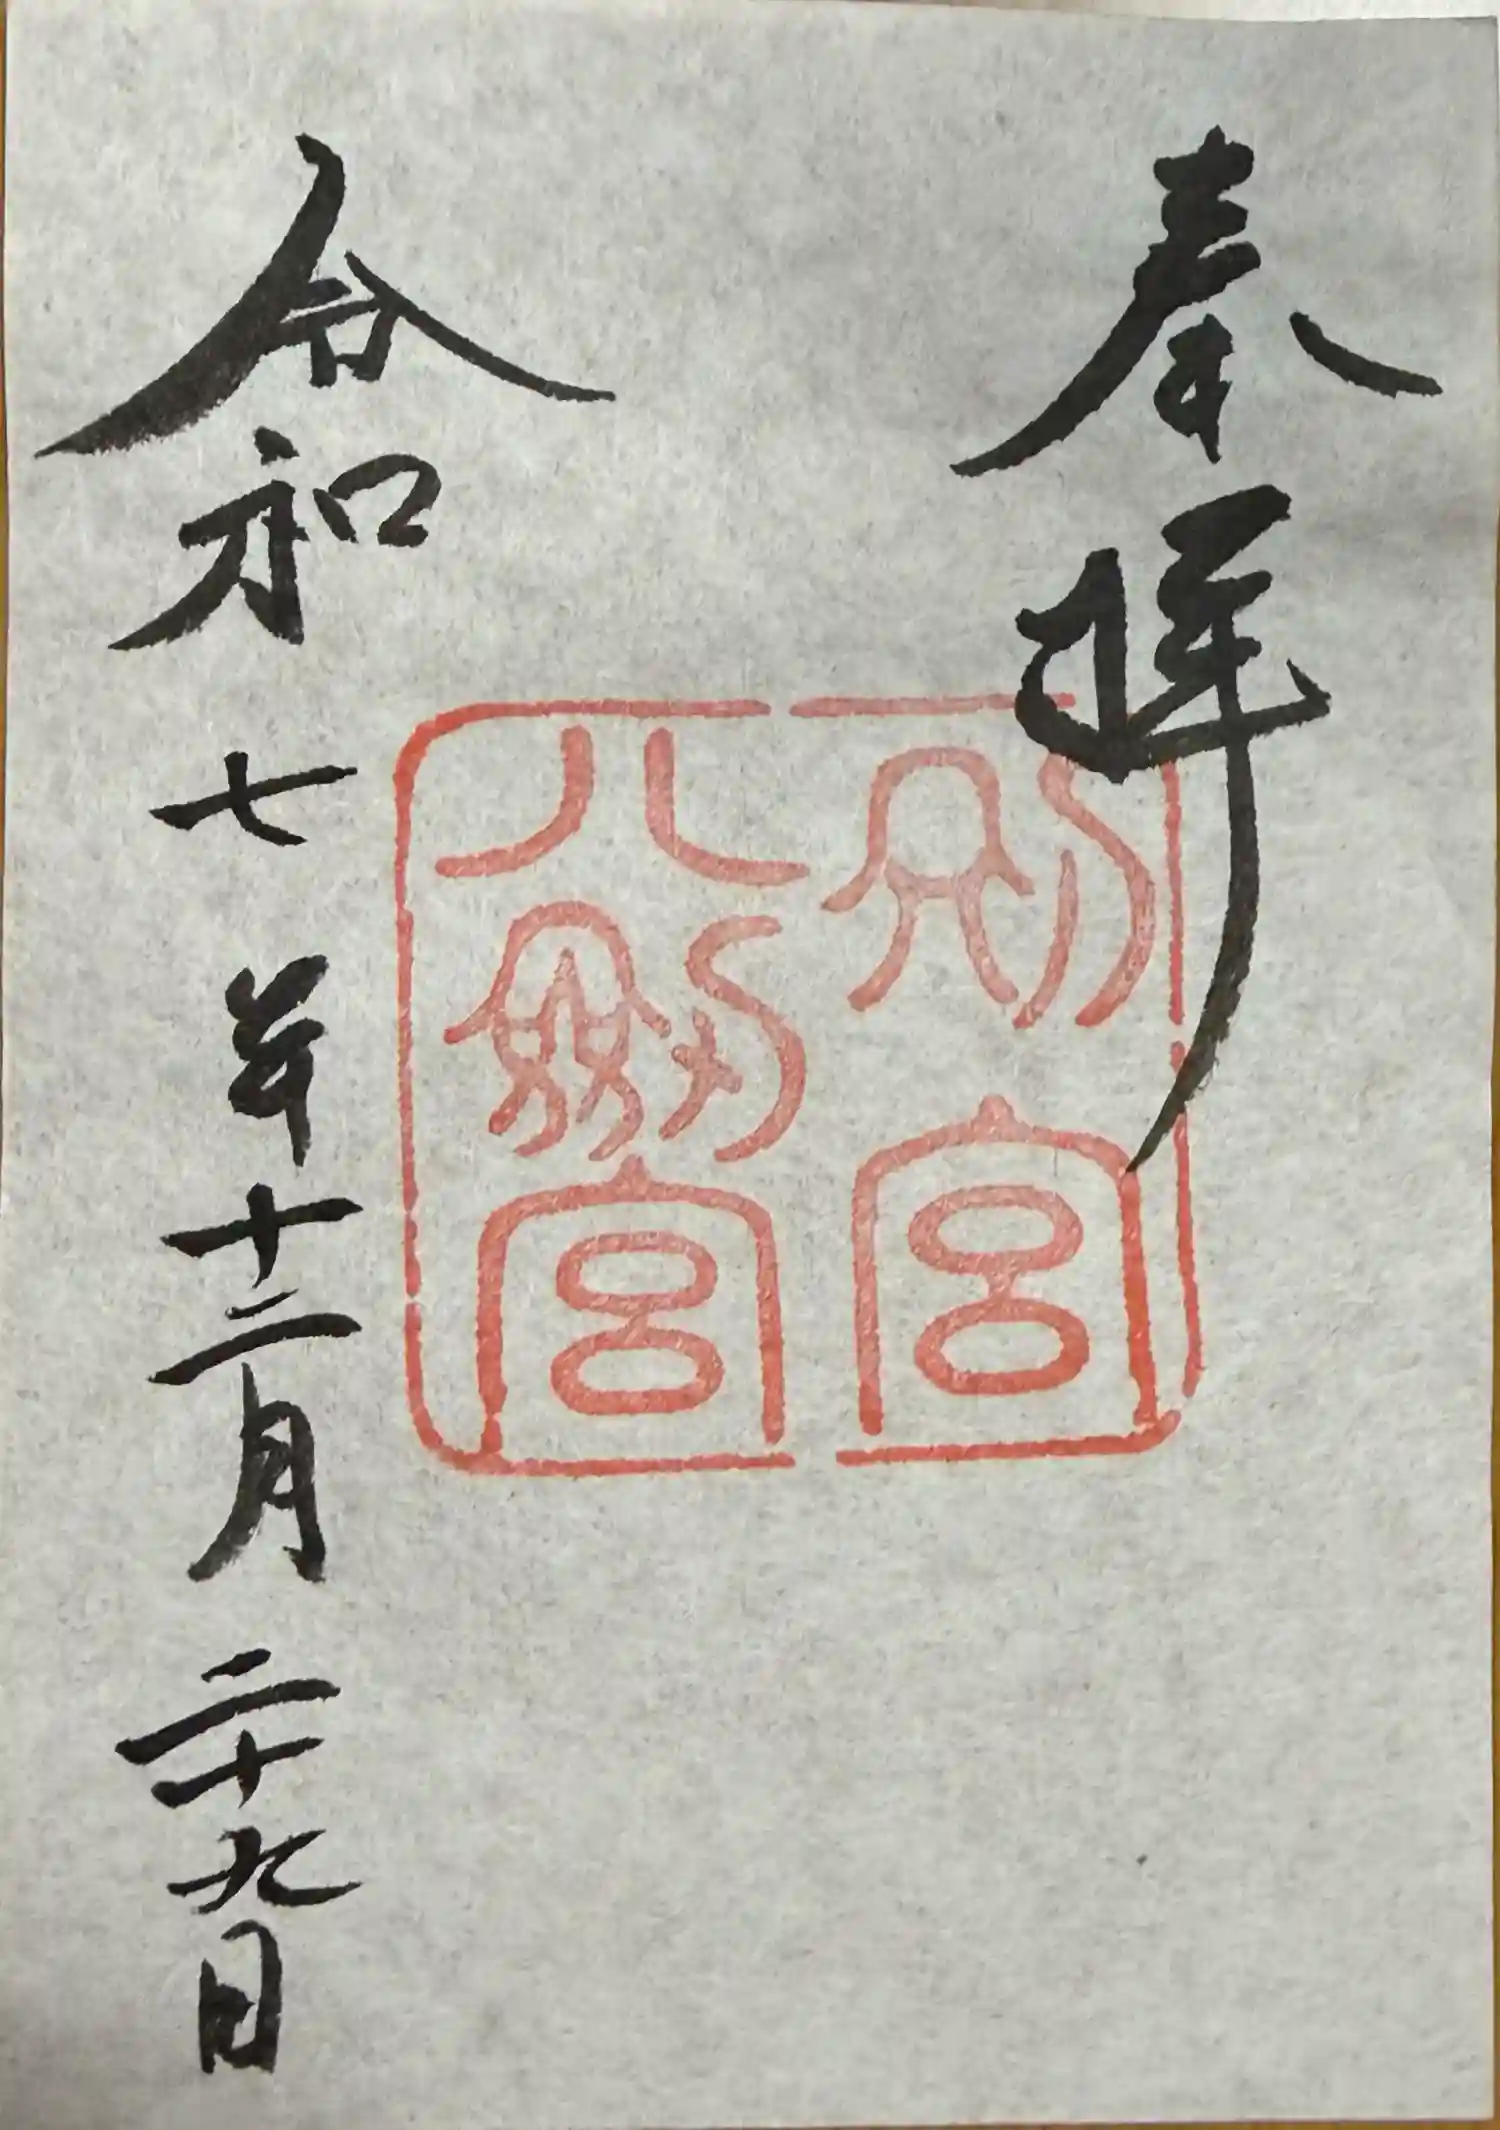 奉拝
別宮
八劔宮
令和七年十二月二十九日